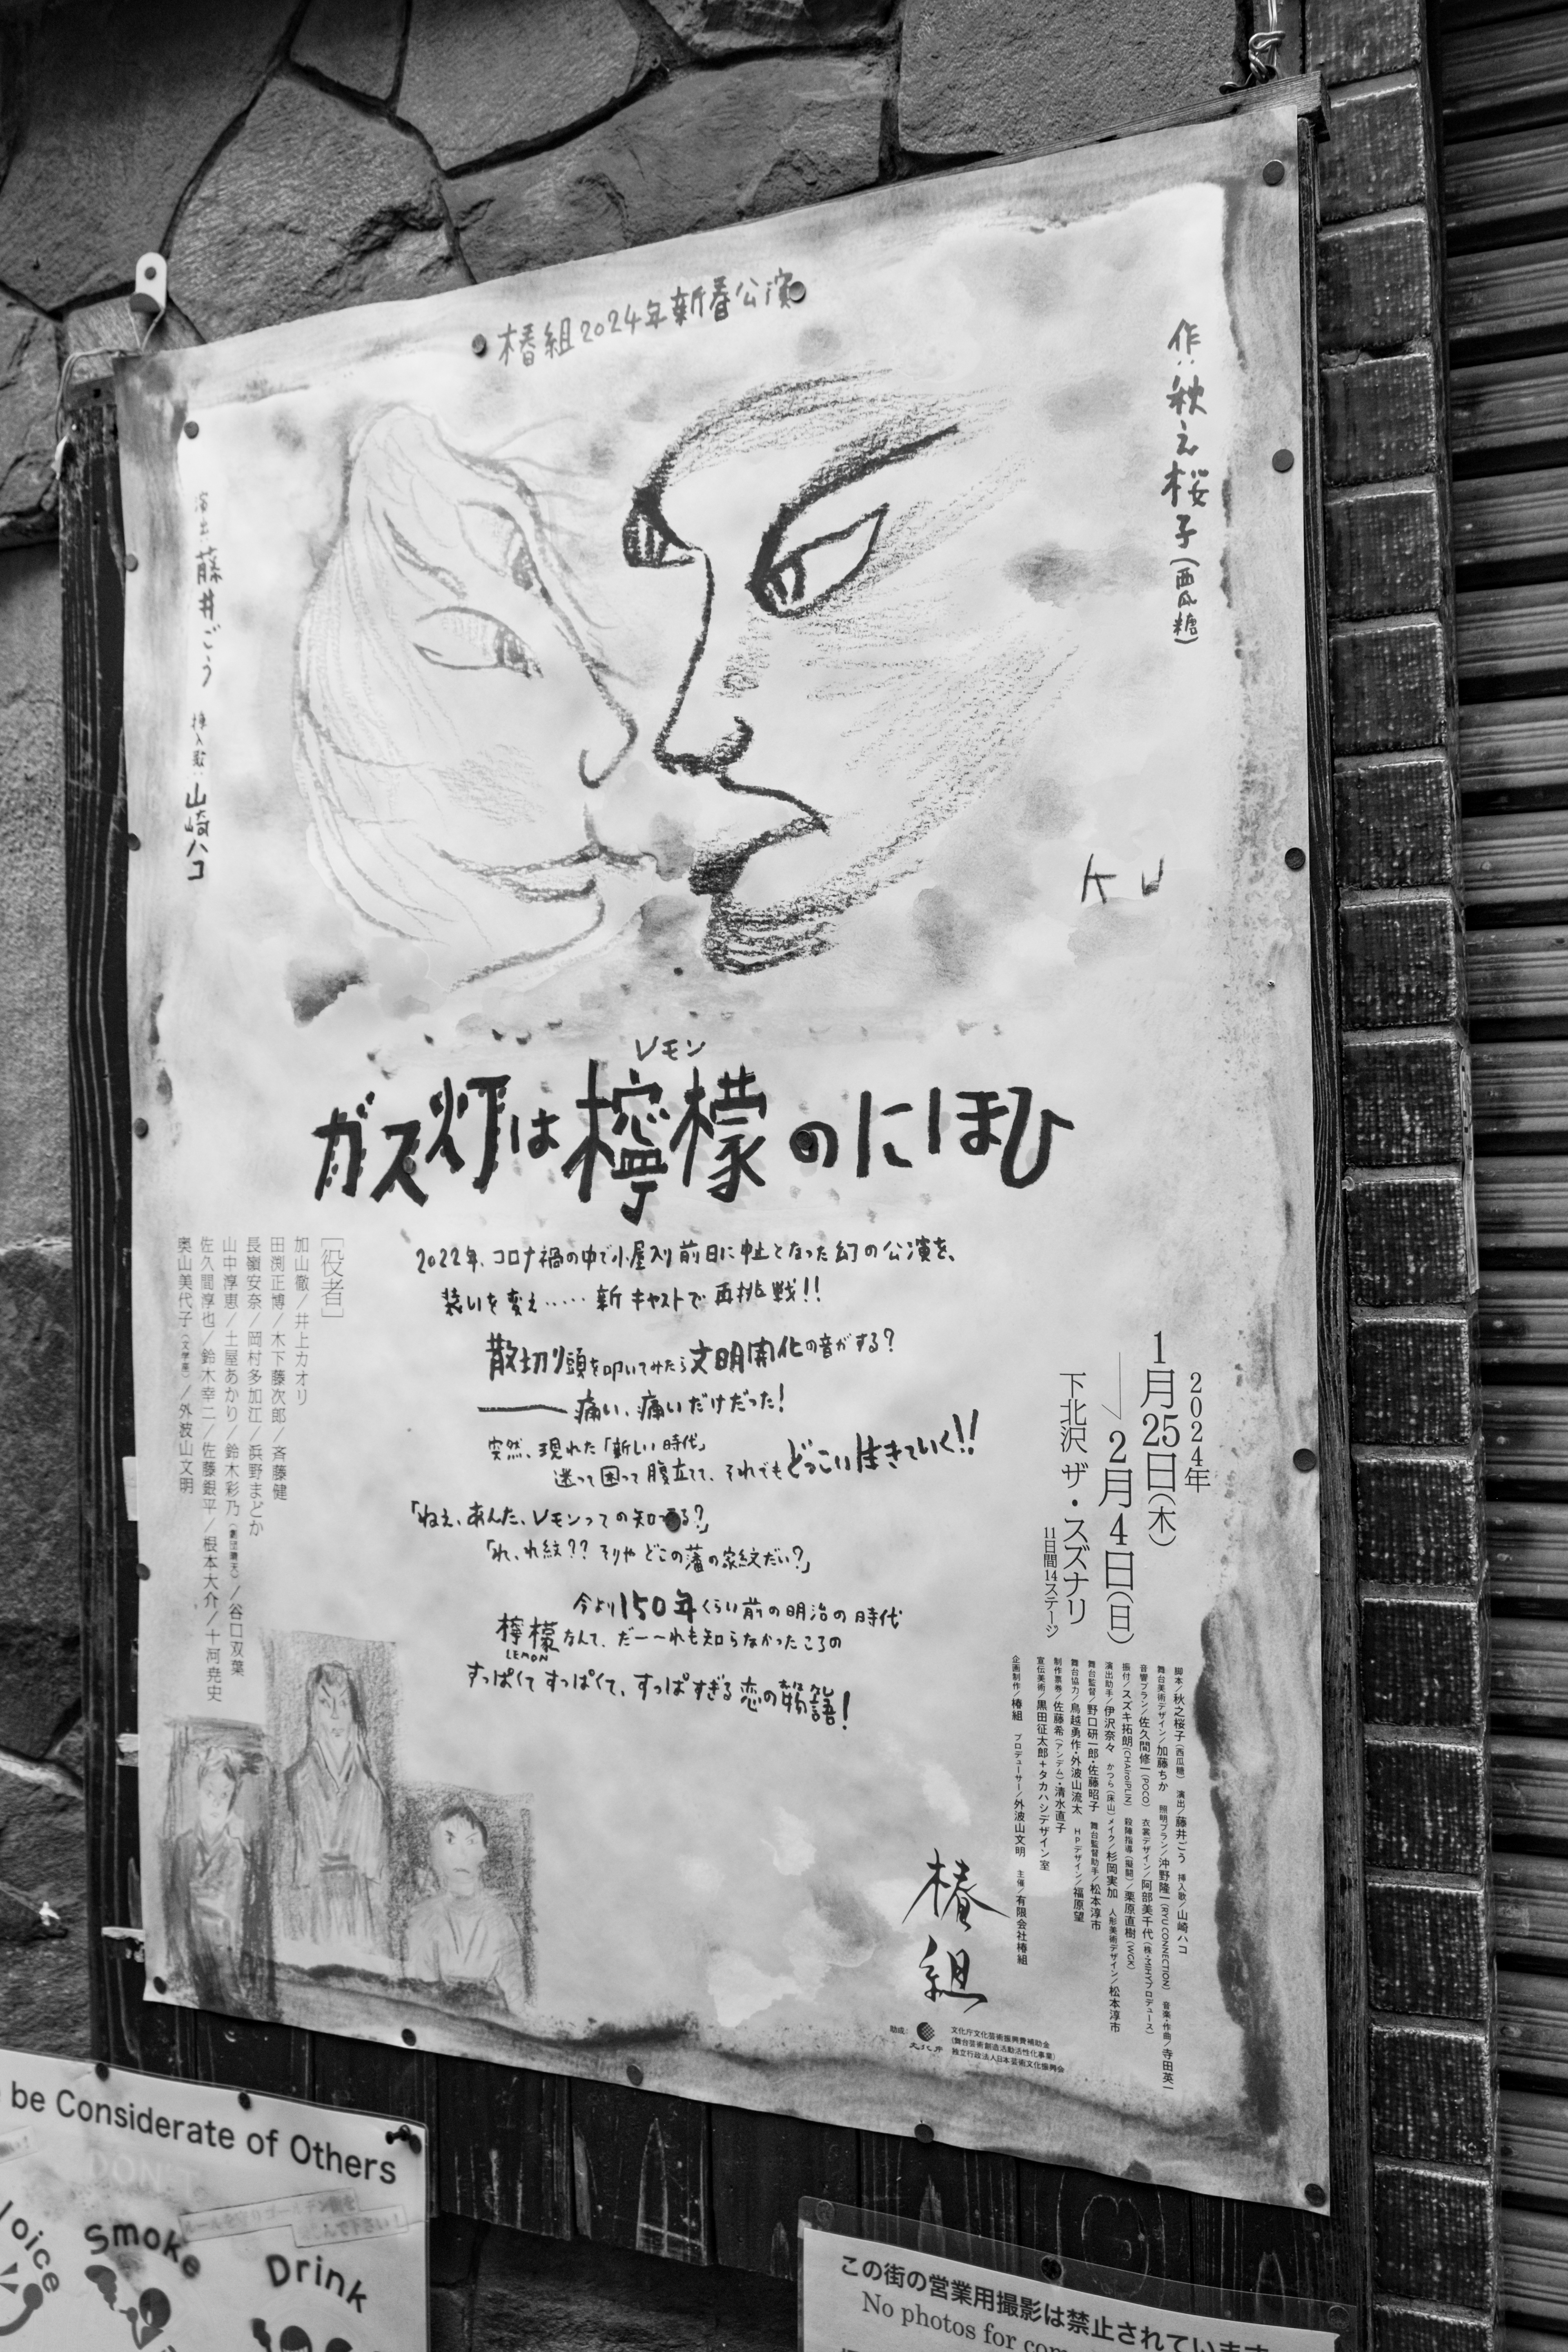 椿組2024年新春公演
作：秋之桜子(西瓜糖)
演出：藤井ごう 挿入歌：山崎ハコ
KU
レモン
ガス灯は檸檬のにほひ
2022年、コロナ禍の中で小屋入り前日に中止となった幻の公演を、
装いを変え……新キャストで再挑戦!!
散切り頭を叩いてみたら文明開化の音がする?
——痛い、痛いだけだった!
突然、現れた「新しい時代」
迷って困って腹立てて、それでもどっこい生きていく!!
「ねぇ、あんた、レモンっての知ってる?」
「れ、れ紋?? そりゃどこの藩の家紋だい?」
今より150年くらい前の明治の時代
檸檬なんて、だー〜れも知らなかったころの
LEMON
すっぱくてすっぱくて、すっぱすぎる恋の
2024年
1月25日(木)
2月4日(日)
下北沢 ザ・スズナリ
11日間14ステージ
[役者]
加山徹／井上カオリ
田渕正博／木下藤次郎／斉藤健
長嶺安奈／岡村多加江／浜野まどか
山中淳恵／土屋あかり／鈴木彩乃／谷口双葉
佐久間淳也／鈴木幸二／佐藤銀平／根本大介／十河尭史
奥山美代子(文学座)／外波山文明
脚本／秋之桜子(西瓜糖) 演出／藤井ごう 挿入歌／山崎ハコ
舞台美術デザイン／加藤ちか 照明プラン／沖野隆一(RYU CONNECTION) 音楽・作曲／寺田英一
音響プラン／佐久間修一(POCO) 衣裳デザイン／阿部美千代(株・MIHYプロデュース)
振付／スズキ拓朗(CHAiroiPLIN) 殺陣指導(擬闘)／栗原直樹(WGK)
演出助手／伊沢奈々 かつら(床山)メイク／杉岡実加 人形美術デザイン／松本淳市
舞台監督／野口研一郎・佐藤昭子 舞台監督助手／松本淳市
舞台協力／鳥越勇作・外波山流太 HPデザイン／福原望
制作票券／佐藤希(アンデム)・清水直子
宣伝美術／黒田征太郎＋タカハシデザイン室
企画制作／椿組 プロデューサー／外波山文明 主催／有限会社椿組
椿組
助成：文化庁
文化庁文化芸術振興費補助金
(舞台芸術創造活動活性化事業)
独立行政法人日本芸術文化振興会
be Considerate of Others
DON'T
Voice
Smoke
Drink
この街の営業用撮影は禁止されています
No photos for com